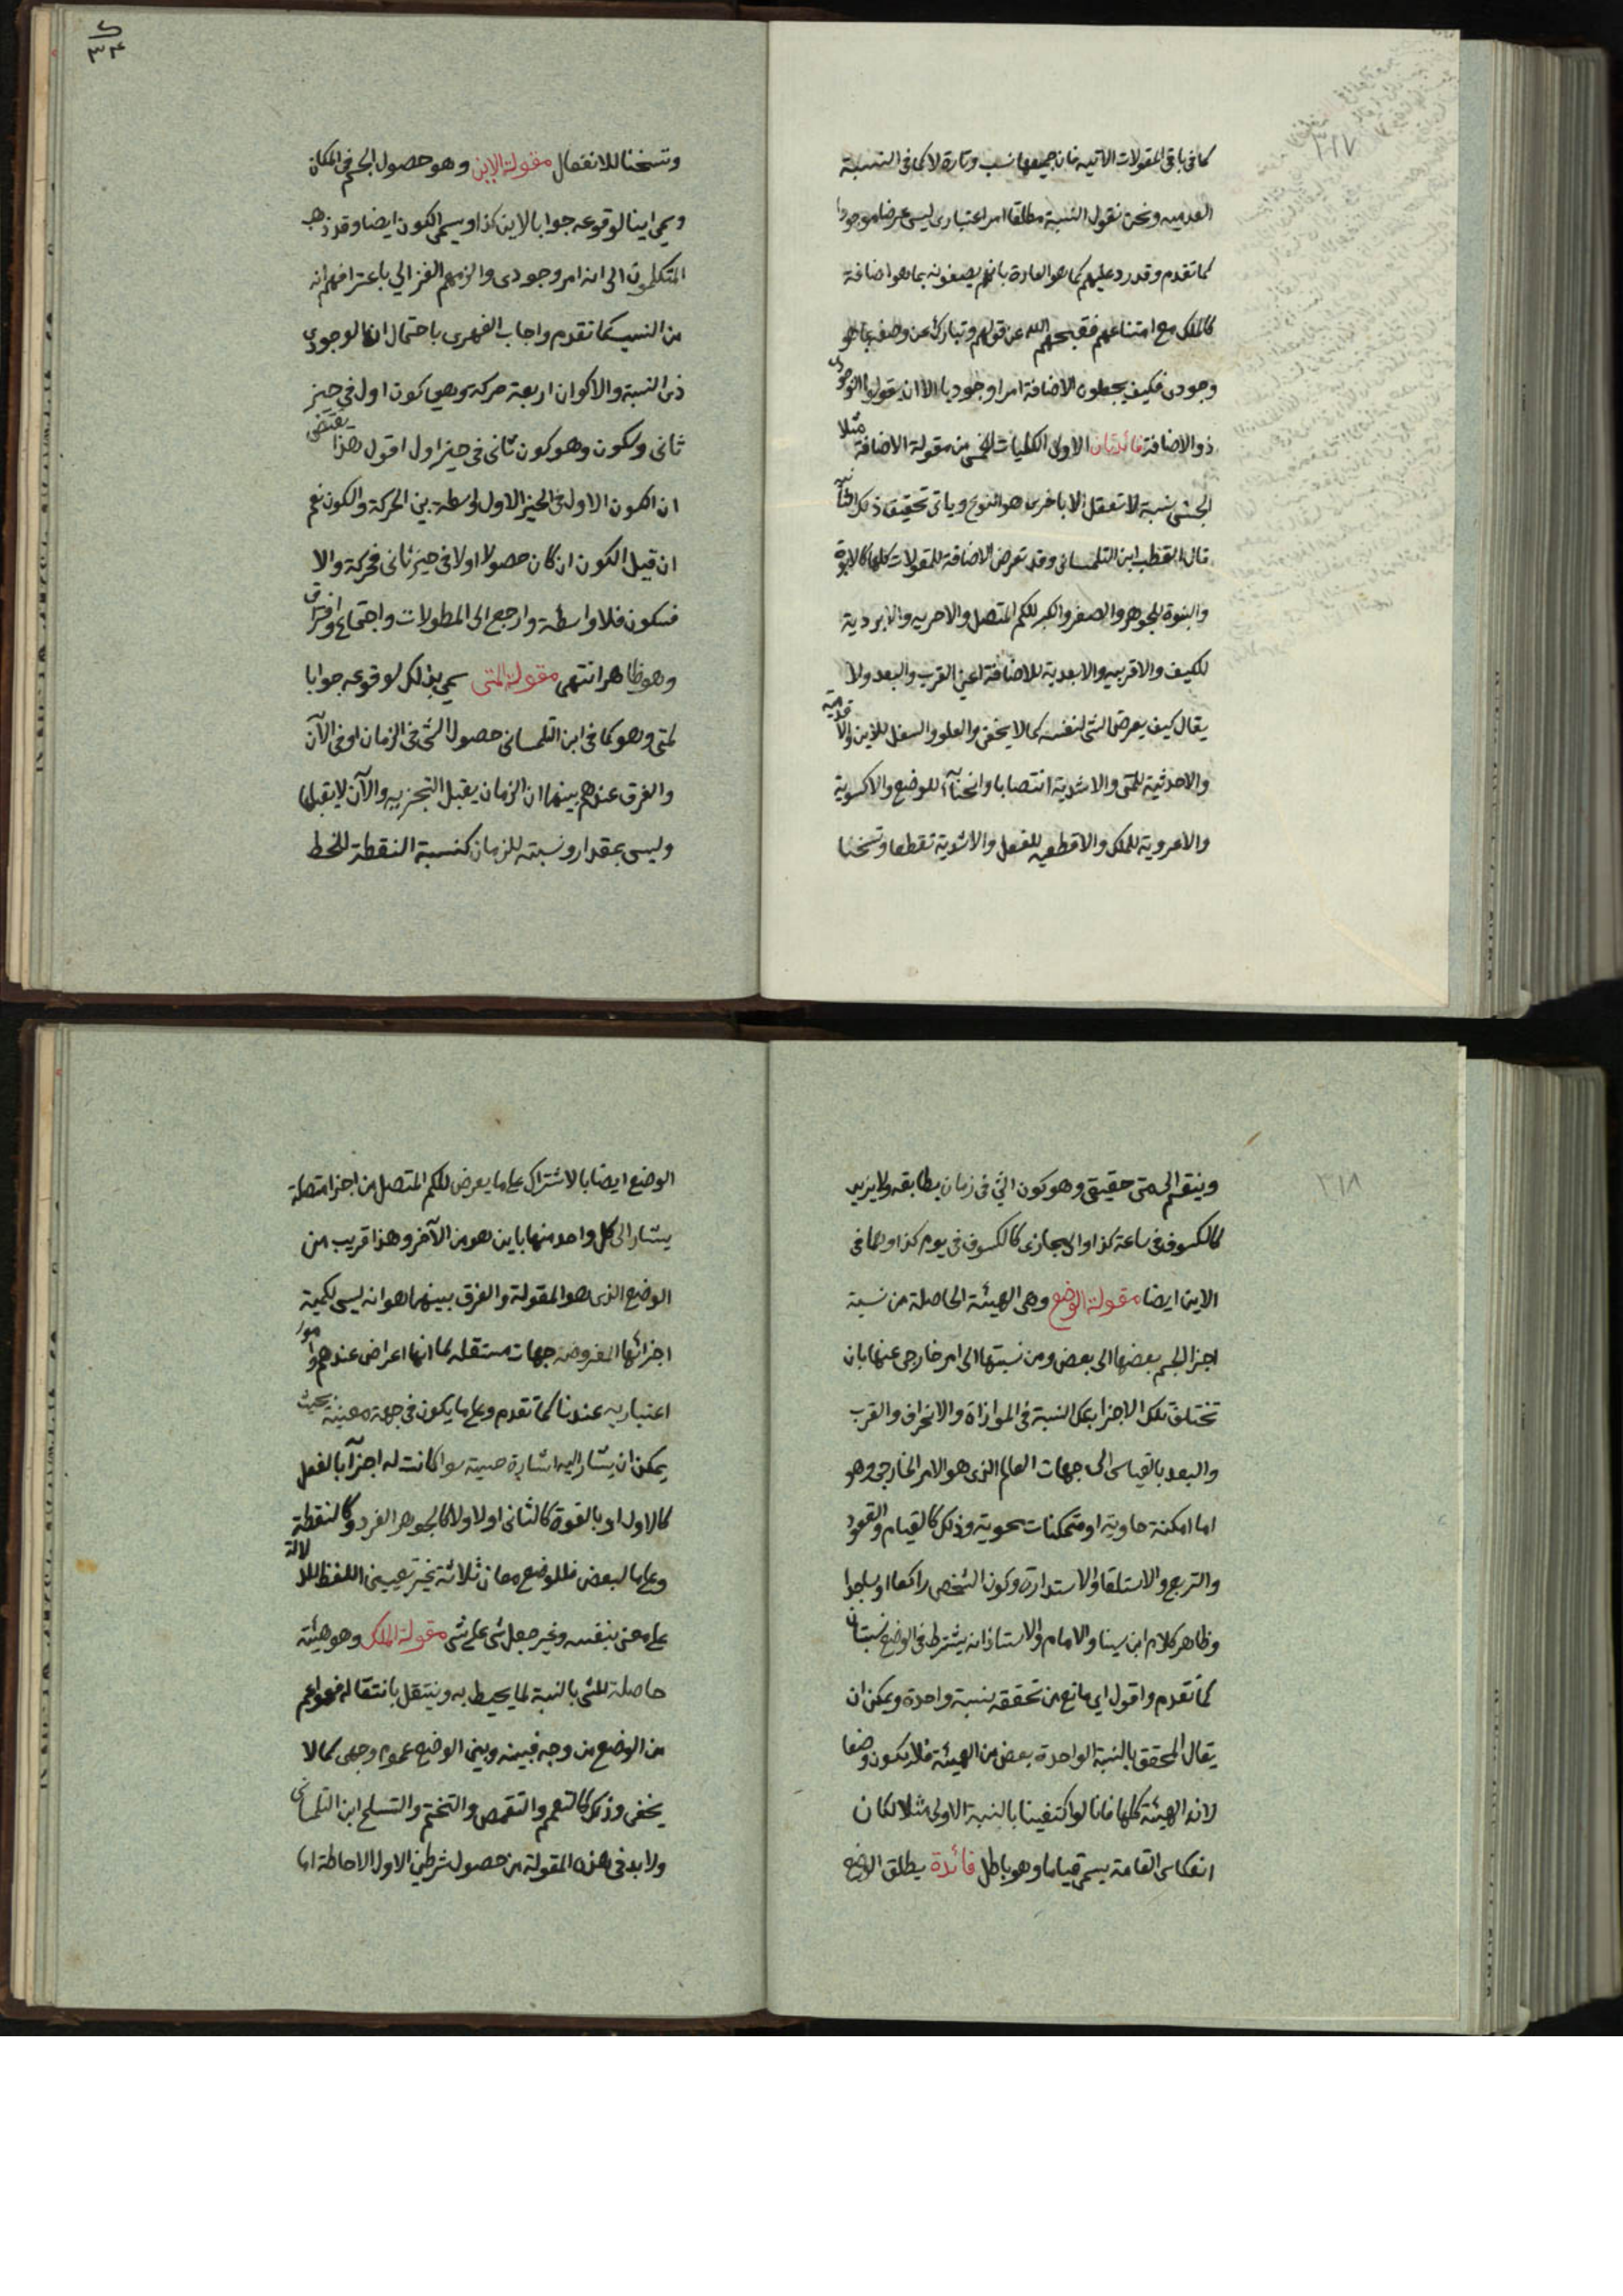 ٣١٧
كما فى باقى المقولات الآتيه فان جميعها نسب وتارة لا كما فى النسبة
العدميه ونحن نقول النسبة مطلقا امر اعتبارى ليس عرضا موجودا
كما تقدم وقد رد عليهم كما هو العادة بانهم يصفونه بما هو اضافة
كالملك مع امتناعهم فقبحهم الله عن قولهم وتبارك عن وصفه بما هو
وجودى فكيف يجعلون الاضافة امرا وجوديا الا ان يقولوا الوجودى
ذو الاضافة فائدتان الاولى الكليات الخمس من مقولة الاضافة مثلا
الجنس نسبة لا تعقل الا باخرى هو النوع وياتى تحقيق ذلك الثانيه
قال القطب ابن التلمسانى وقد تعرض الاضافة للمقولات كلها كالابوة
والبنوة للجوهر والصغر والكبر للكم المتصل والاحريه والابردية
للكيف والاقربيه والابعدية للاضافة اعنى القرب والبعد ولا
يقال كيف يعرض الشى لنفسه كما لا يخفى والعلو والسفل للاين والاقدميه
والاحدثية للمتى والاشدية انتصابا وانحناء للوضع والاكسوية
والاعروية للملك والاقطعيه للفعل والاشدية تقطعا وتسخنا
٣٤
وتسخنا للانفعال مقولة الاين وهو حصول الجسم فى المكان
ويسمى اينا لوقوعه جوابا لاين كذا ويسمى الكون ايضا وقد ذهب
المتكلمون الى انه امر وجودى والزمهم الغزالي باعترافهم انه
من النسب كما تقدم واجاب الفهرى باحتمال ان الوجودى
ذى النسبة والاكوان اربعة حركة وهي كون اول فى حيز
ثانى وسكون وهو كون ثانى فى حيز اول اقول هذا يقتضى
ان الكون الاول فى الحيز الاول واسطة بين الحركة والكون نعم
ان قيل الكون ان كان حصولا اولا فى حيز ثانى فحركة والا
فسكون فلا واسطة وارجع الى المطولات واجتماع وافتراق
وهو ظاهر انتهى مقولة المتى سمي بذلك لوقوعه جوابا
لمتى وهو كما فى ابن التلمسانى حصول الشئ فى الزمان او فى الآن
والفرق عندهم بينهما ان الزمان يقبل التجزيه والآن لا يقبلها
وليس بمقدار ونسبته للزمان كنسبة النقطة للخط
٣١٨
وينقسم الى متى حقيقى وهو كون الشئ فى زمان يطابقه ولا يزيد
كالكسوف فى ساعة كذا والى مجازى كالكسوف فى يوم كذا وهما فى
الاين ايضا مقولة الوضع وهى الهيئة الحاصلة من نسبة
اجزا الجسم بعضها الى بعض ومن نسبتها الى امر خارجى عنها بان
تختلف تلك الاجزا بتلك النسبة فى الموازاة والانحراف والقرب
والبعد بالقياس الى جهات العالم الذى هو الامر الخارجى وهو
اما امكنة حاوية او متمكنات محوية وذلك كالقيام والقعود
والتربع والاستلقا والاستدارة وكون الشخص راكعا او ساجدا
وظاهر كلام ابن سينا والامام والاستاذ انه يشترط فى الوضع نسبتان
كما تقدم واقول اي مانع من تحققه بنسبة واحدة ويمكن ان
يقال المحقق بالنسبة الواحدة بعض من الهيئة فلا تكون وضعا
لانه الهيئة كلها فانا لو اكتفينا بالنسبة الاولى مثلا لكان
انعكاس القامة يسمى قياما وهو باطل فائدة يطلق الوضع
الوضع ايضا بالاشتراك على ما يعرض للكم المتصل من اجزا متصلة
يشار الى كل واحد منها باين هو من الآخر وهذا قريب من
الوضع الذى هو المقولة والفرق بينهما هو انه ليس لكمية
اجزائها المفروضة جهات مستقلة لما انها اعراض عندهم وامور
اعتباريه عندنا كما تقدم وعلى ما يكون فى جهة معينة بحيث
يمكن ان يشار اليه اشارة حسية سوا كانت له اجزآ بالفعل
كالاول او بالقوة كالثانى اولا ولا كالجوهر الفرد وكالنقطة
وعلى ما لبعض فللوضع معان ثلاثة غير تعيين اللفظ للدلالة
على معنى بنفسه وغير جعل شى على شى مقولة الملك وهو هيئة
حاصلة للشى بالنسبة لما يحيط به وينتقل بانتقاله فهو اعم
من الوضع من وجه فبينه وبين الوضع عموم وجهى كما لا
يخفى وذلك كالتعمم والتقمص والتختم والتسلح ابن التلمسانى
ولا بد فى هذه المقولة من حصول شرطين الاول الاحاطة اما